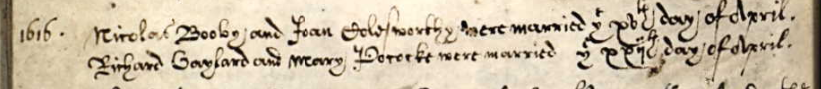 1616. Nicolas Booby and Joan Colesworthy were married yͤ xvͭͪ day of April.
Richard Gaylard and Mary Pococke were married yͤ xxijͭͪ day of April.